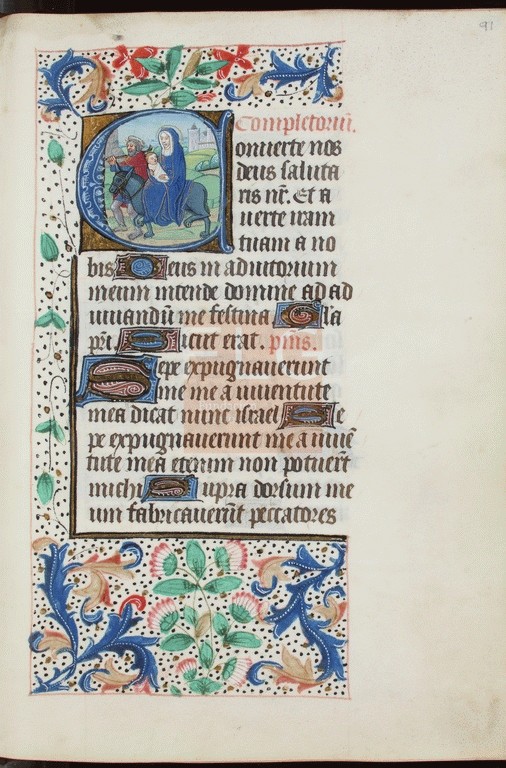 91
Completoriū.
Conuerte nos
deus saluta
ris nr̄. Et a
uerte iram
tuam a no
bis Deus in adiutorium
meum intende domine ad ad
iuuandū me festina Gla
pr̄i. Sicut erat. p̄ms.
Sepe expugnauerunt
me me a iuuentute
mea dicat nunc israel Se
pe expugnauerunt me a iuuē
tute mea etenim non potuerūt
michi Supra dorsum me
um fabricauerūt peccatores